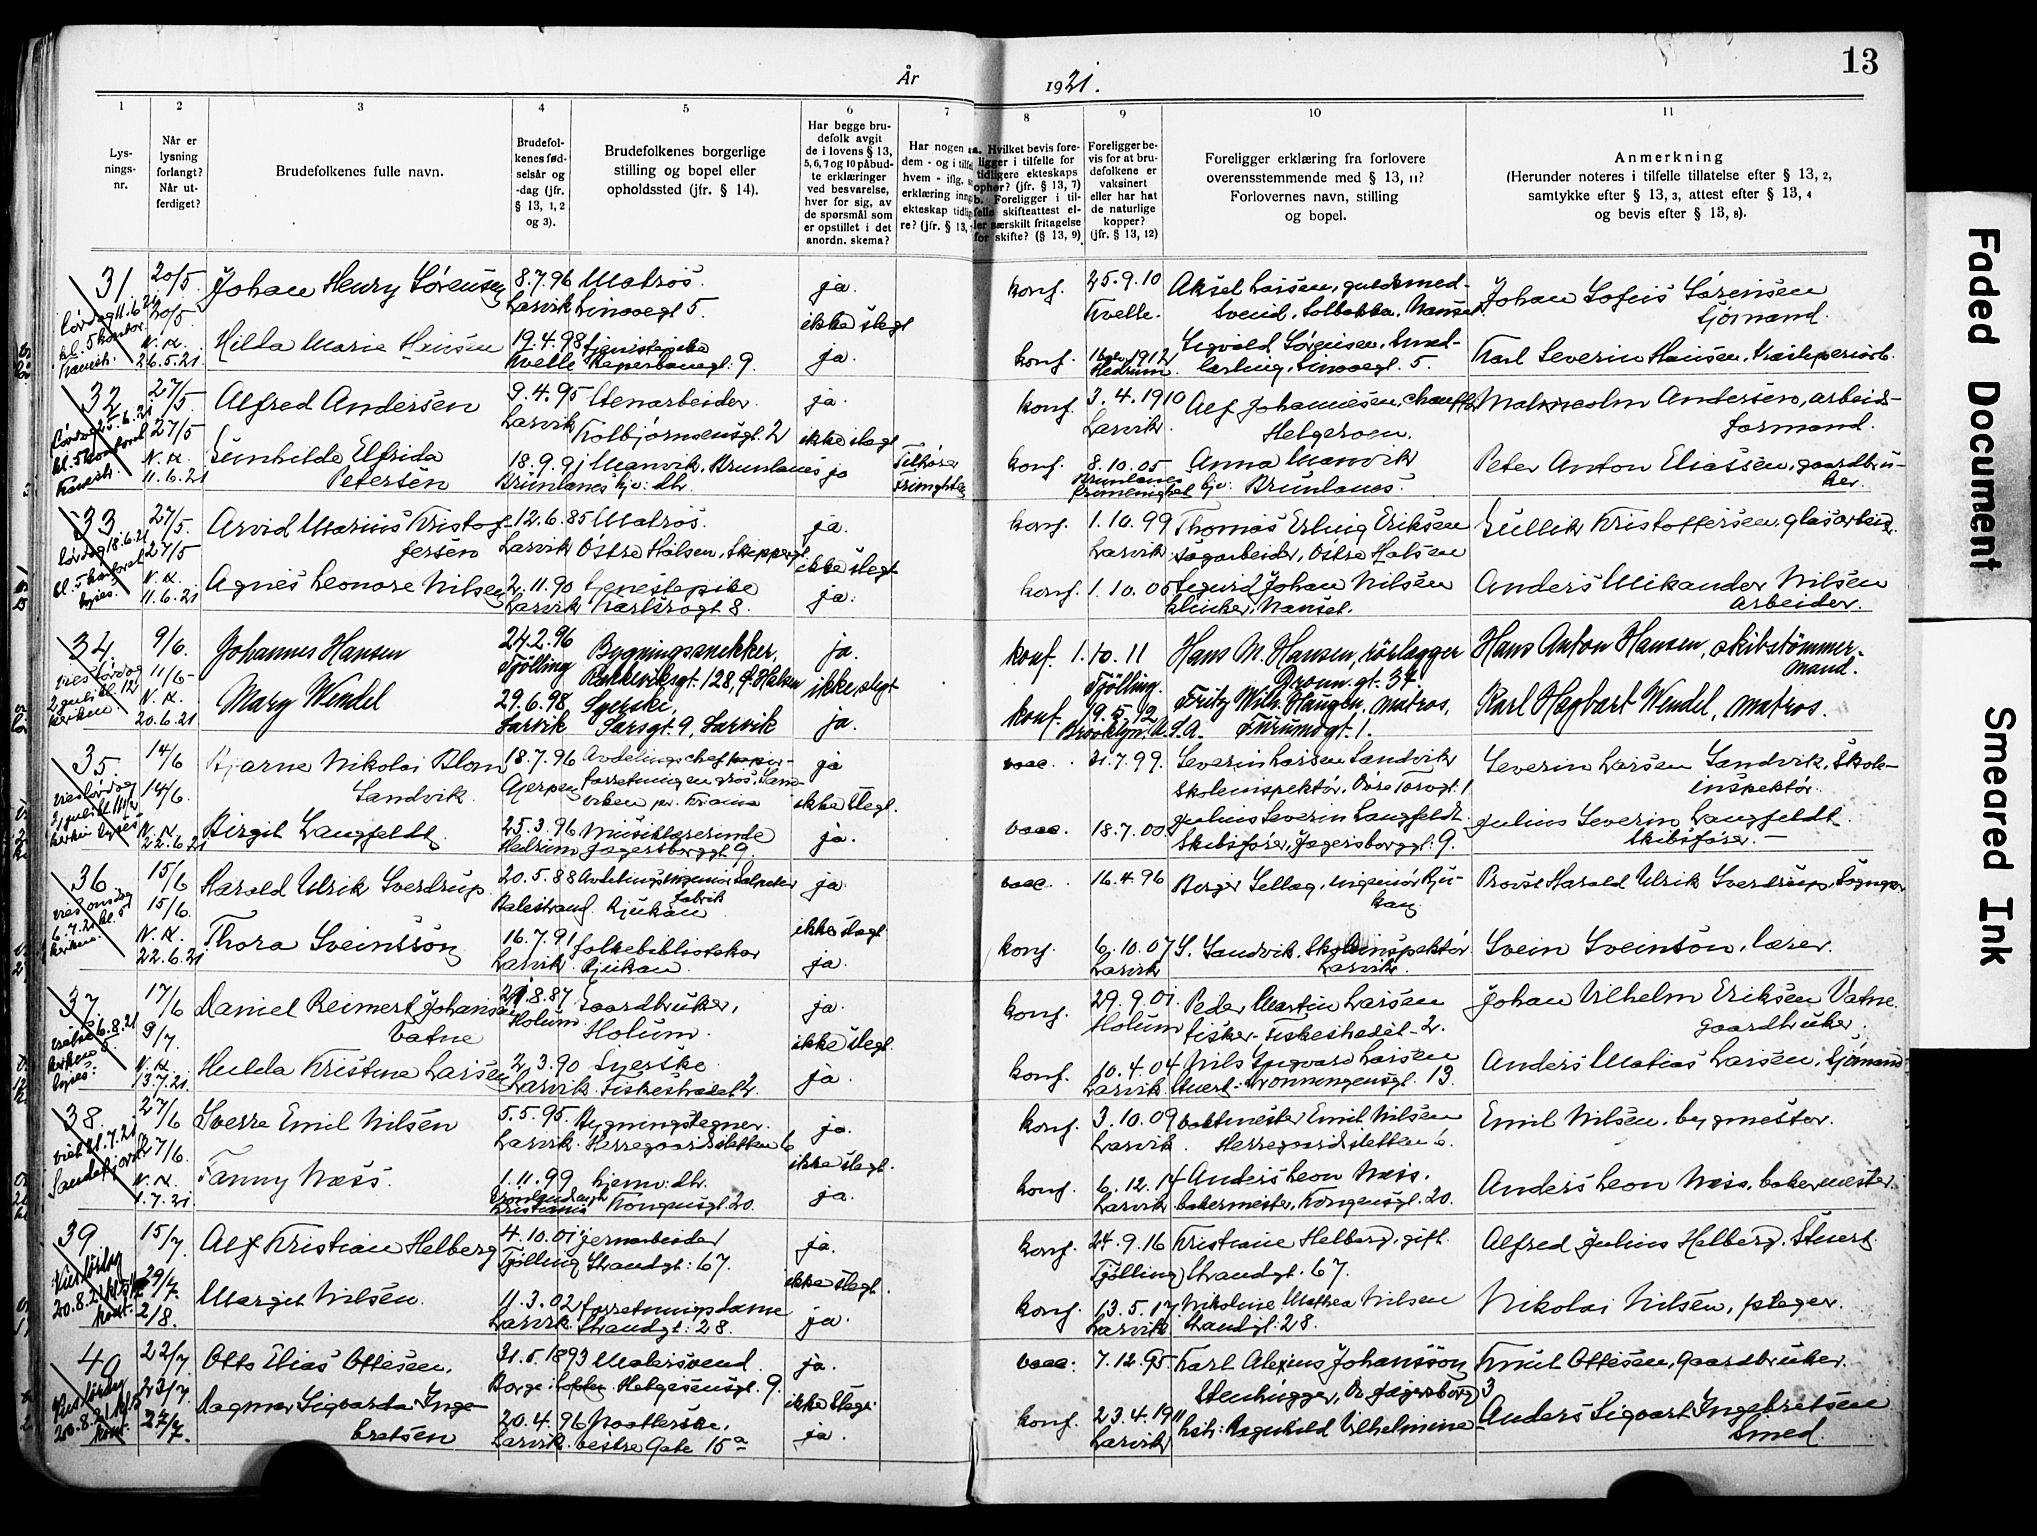 13
År 1921.
1 2 3 4 5 6 7 8 9 10 11
Lys-
nings-
nr.
Når er
lysning
forlangt?
Når ut-
ferdiget?
Brudefolkenes fulle navn.
Brudefol-
kenes fød-
selsår og
-dag (jfr.
§ 13, 1, 2
og 3).
Brudefolkenes borgerlige
stilling og bopel eller
opholdssted (jfr. § 14).
Har begge bru-
defolk avgit
de i lovens § 13,
5, 6, 7 og 10 påbud-
te erklæringer
ved besvarelse,
hver for sig, av
de spørsmål som
er opstillet i det
anordn. skema?
Har nogen a
dem - og i tilfe
hvem - iflg.
erklæring inng
ekteskap tidlig
re? (jfr. § 13,
a. Hvilket bevis fore-
ligger i tilfelle for
tidligere ekteskaps
ophør? (jfr. § 13, 7)
b. Foreligger i til-
felle skifteattest el-
ler særskilt fritagelse
for skifte? (§ 13, 9)
Foreligger be-
vis for at bru-
defolkene er
vaksinert
eller har hat
de naturlige
kopper?
(jfr. § 13, 12)
Foreligger erklæring fra forlovere
overensstemmende med § 13, 11?
Forlovernes navn, stilling
og bopel.
Anmerkning
(Herunder noteres i tilfelle tillatelse efter § 13, 2,
samtykke efter § 13, 3, attest efter § 13, 4
og bevis efter § 13, 8).
31 20/5 Johan Henry Sørensen 8.7.96 Matros. ja. konf. 25.9.10 Aksel Larsen, guldsmed- Johan Sofus Sørensen
Lørdag 11.6.21 20/5 Larvik Linaaegt 5. ikke slegt Kvelle. Svend, Solbakken, Nanset Sjømand.
kl. 5 kontor N.K. Hilda Marie Hansen 19.4.98 tjenestepike ja. konf. 1912 Sigvald Sørensen, Karl Severin Hansen,
26.5.21 Kvelle Reperbanegt. 9. Hedrum. lærling, Linaaegt. 5.
32 27/5 Alfred Andersen 9.4.95 Stenarbeider. ja. konf. 3.4.1910 Alf Johannesen, chauffør Malmcolm Andersen, arbeids-
Lørdag 25.6.21 27/5 Larvik Kolbjørnsensgt. 2 ikke slegt Larvik Helgeroen. formand.
kl. 5 N.K. Gunhilde Elfrida 18.9.91 Manvik, Brunlanes ja Tilhører konf. 8.10.05 Anna Manvik Peter Anton Eliassen, gaardbru-
11.6.21 Petersen Brunlanes hjv: dtr. Brunlanes hjv. Brunlanes. ker.
33 27/5. Arvid Marius Kristof- 12.6.85 Matros. ja. konf. 1.10.99 Thomas Erling Eriksen Gullik Kristoffersen, glasarbeid.
Lørdag 18.6.21 27/5 fersen Larvik Østre Halsen, Skippergt. ikke slegt Larvik sagarbeider, Østre Halsen
kl. 5 N.K. Agnes Leonore Nilsen 2.11.90 tjenestepike ja. konf. 1.10.05 Sigurd Johan Nilsen Anders Mikander Nilsen
11.6.21 Larvik Karlsrogt 8. Nanset. arbeider.
34. 9/6. Johannes Hansen 24.2.96 Bygningssnekker, ja. konf. 1.10.11 Hans M. Hansen, rørlægger Hans Anton Hansen, skibstømmer-
11/6- Tjølling Bakkeviksgt. 128, Ø. Halsen ikke slegt Tjølling. Dronn.gt. 37. mand.
N.K. Mary Wendel 29.6.98 Syerske, konf. 19.5.12 Fritz Wilh. Haugen, matros, Karl Hagbart Wendel, matros.
20.6.21 Larvik Larsgt. 9, Larvik ja. Brooklyn U.S.A. Furumogt. 1.
35. 14/6 Bjarne Nikolai Blom 18.7.96 Avdelingschef papir- ja vacc. 21.7.99. Severin Larsen Sandvik Severin Larsen Sandvik, Skole-
14/6. Sandvik. Gjerpen forretning en gros, ikke slegt. Skoleinspektør, Øvre Torvgt. 1 inspektør.
N.K. Birgit Langfeldt 25.3.96 Musiklærerinde ja. vacc. 18.7.00. Julius Severin Langfeldt Julius Severin Langfeldt
22.6.21 Hedrum Jegersborggt 9. Skibsfører, Jegersborggt: 9. Skibsfører.
36 15/6 Harald Ulrik Sverdrup. 20.5.88 Avdelingsingeniør Salpeter ja. vacc. 16.4.96 Birger Sellæg, ingeniør Rju- Provst Harald Ulrik Sverdrup,
15/6. Balestrand fabrik Rjukan kan
N.K. Thora Sveinsson 16.7.91 folkebibliotekar ikke slegt konf. 6.10.07 S. Sandvik, Skoleinspektør Svein Sveinson, lærer.
22.6.21 Larvik Rjukan. ja. Larvik Larvik.
37 17/6 Daniel Reimert Johansen 29.8.87 Gaardbruker, ja. konf. 29.9.01 Peder Martin Larsen Johan Vilhelm Eriksen Vatne
9/7. Vatne Holum Holum. ikke slegt Holum fisker- Fiskestrædet 2. gaardbruker.
N.K. Hulda Kristine Larsen 2.3.90 Syerske ja. konf. 10.4.04 Nils Yngvard Larsen Anders Matias Larsen, Sjømand
13.7.21. Larvik Fiskestrædet 2. Larvik Stuert. Dronningensgt. 13.
38. 27/6 Sverre Emil Nilsen 5.5.95. Bygningstegner. ja. konf. 3.10.09 Emil Nilsen Emil Nilsen, bygmester.
viet 21.7.21 27/6. Larvik. Herregaardsletten 6 ikke slegt Larvik. Herregaardsletten 6.
Sandefjord N.K. Fanny Næss. 1.11.99 hjemv. dtr. ja. konf. 6.12.14 Anders Leon Næss, Anders Leon Næss, bakermester.
1.7.21. Kristiania Kongensgt. 20. Larvik bakermester, Kongensgt. 20.
39 15/7. Alf Kristian Helberg 4.10.01 jernarbeider ja. konf. 24.9.16 Kristiane Helberg, gift. Alfred Julius Helberg, Stuert
29/7. Tjølling Strandgt: 67. ikke slegt. Tjølling Strandgt. 67.
20.8.21 2/8. Margit Nilsen. 11.3.02 forretningsdame ja. konf. 13.5.17 Nikoline Mathea Nilsen Nikolai Nilsen, pleger.
Larvik. Strandgt: 28. Larvik Strandgt: 28.
40 22/7. Otto Elias Ottesen, 31.5.1893 Malersvend. ja. vacc: 7.12.95. Karl Alexius Johansson Knut Ottesen, gaardbruker.
23/7. Dagmar Sigvarda Inge- Borge: Lofoten Helgesensgt. 9. ikke slegt. Stenhugger, Ø. Jegersborg 3
20.8.21 27/7. bretsen 20.4.96 vestre Gate 15a ja. konf. 23.4.1911 hstr: Ragnhild Vilhelmine- Anders Sigvart Ingebretsen
Larvik. Larvik Smed.
Faded Document
Smeared Ink